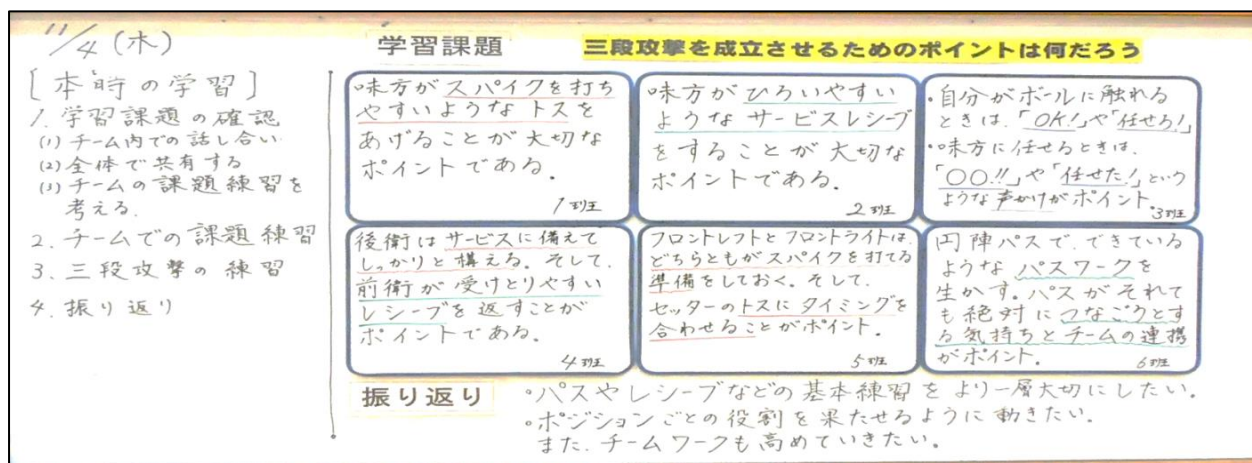 11/4(木)
[本時の学習]
1. 学習課題の確認
(1) チーム内での話し合い
(2) 全体で共有する
(3) チームの課題練習を
考える.
2. チームでの課題練習
3. 三段攻撃の練習
4. 振り返り
学習課題
三段攻撃を成立させるためのポイントは何だろう
・味方がスパイクを打ち
やすいようなトスを
あげることが大切な
ポイントである.
1班
味方がひろいやすい
ようなサービスレシーブ
をすることが大切な
ポイントである.
2班
・自分がボールに触れる
ときは、「OK!」や「任せろ!」
・味方に任せるときは、
「〇〇!!」や「任せた!」という
ような声かけがポイント.
3班
後衛はサービスに備えて
しっかりと構える。そして、
前衛が受けとりやすい
レシーブを返すことが
ポイントである.
4班
フロントレフトとフロントライトは、
どちらともがスパイクを打てる
準備をしておく。そして、
セッターのトスにタイミングを
合わせることがポイント.
5班
円陣パスで、できている
ようなパスワークを
生かす。パスがそれて
も絶対につなごうとす
る気持ちとチームの連携
がポイント.
6班
振り返り
・パスやレシーブなどの基本練習をより一層大切にしたい.
・ポジションごとの役割を果たせるように動きたい.
また、チームワークも高めていきたい.